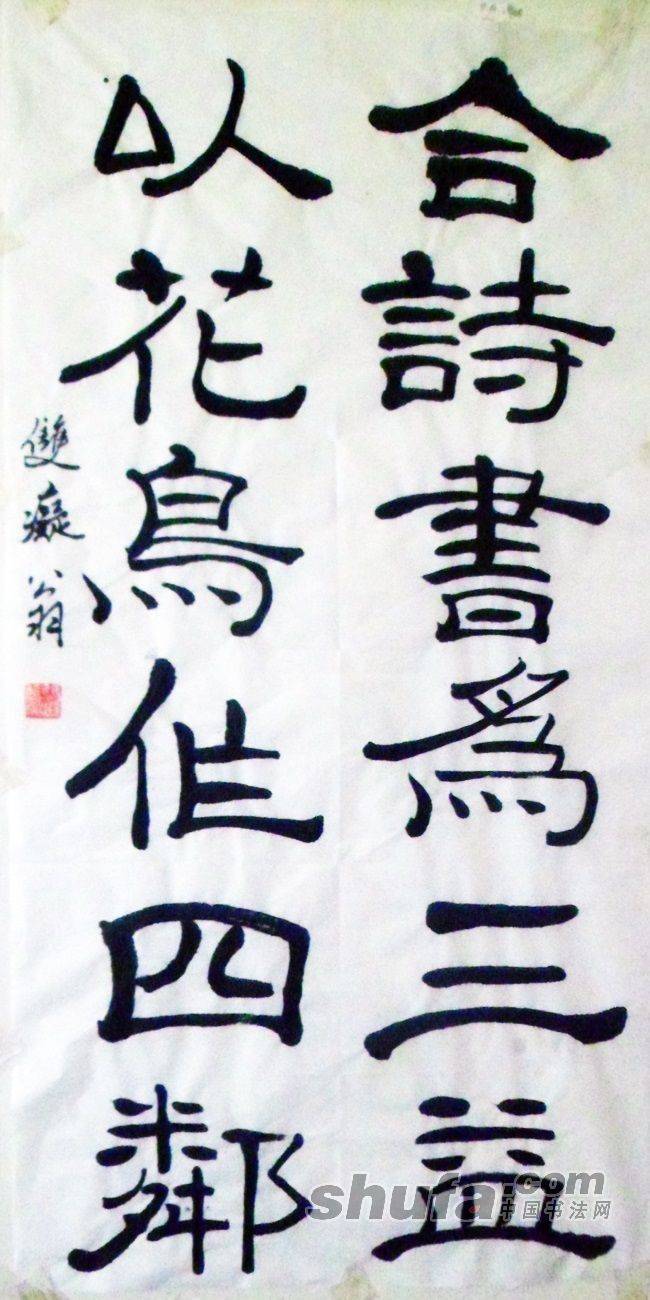 合詩書爲三益
以花鳥作四鄰
雙癡翁
shufa.com
中国书法网